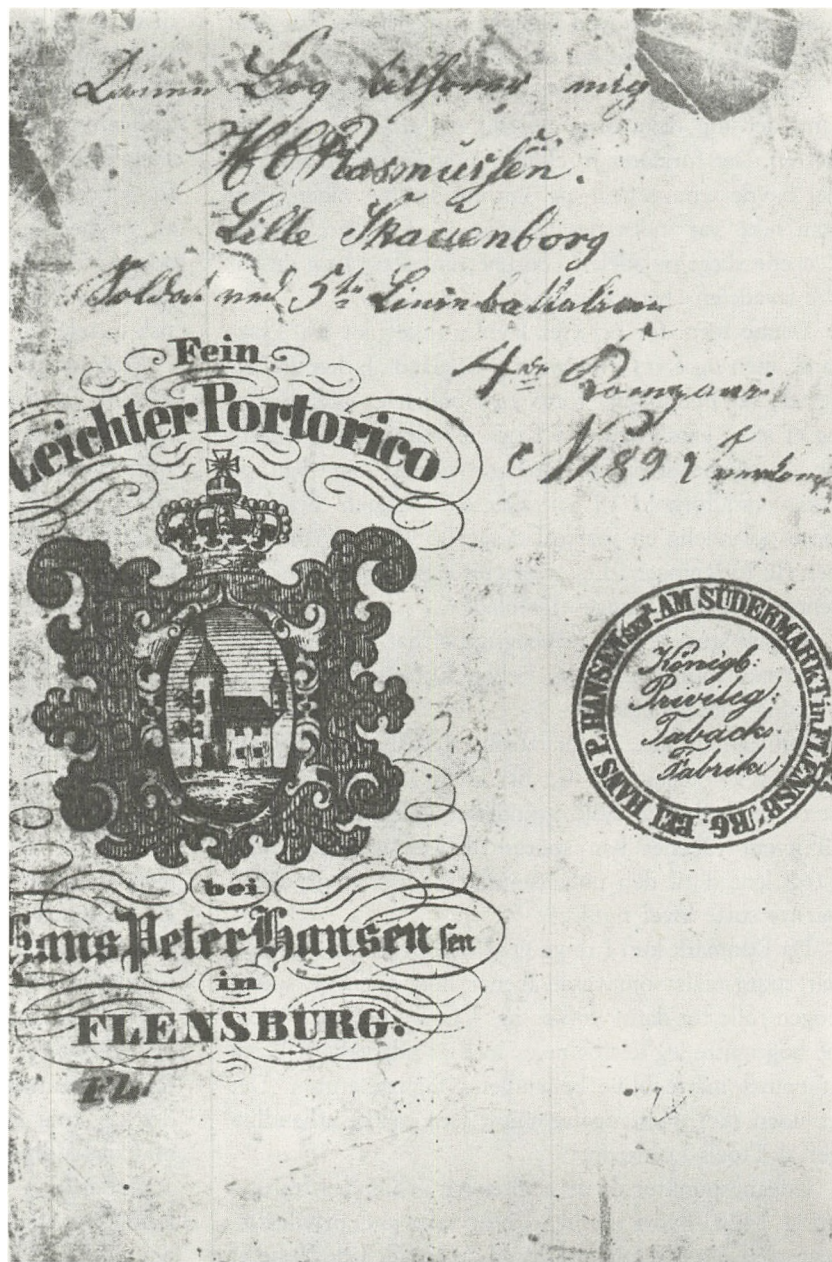 Denne Bog tilhører mig
H C Rasmussen.
Lille Skauenborg
Soldat ved 5te Linienbattalion
4de Compani
N 189
Fein
Leichter Portorico
bei
Hans Peter Hansen sen
in
FLENSBURG.
BEI HANS P. HANSEN sen. AM SÜDERMARKT in FLENSBURG.
Königl:
Privileg:
Taback.
Fabrike